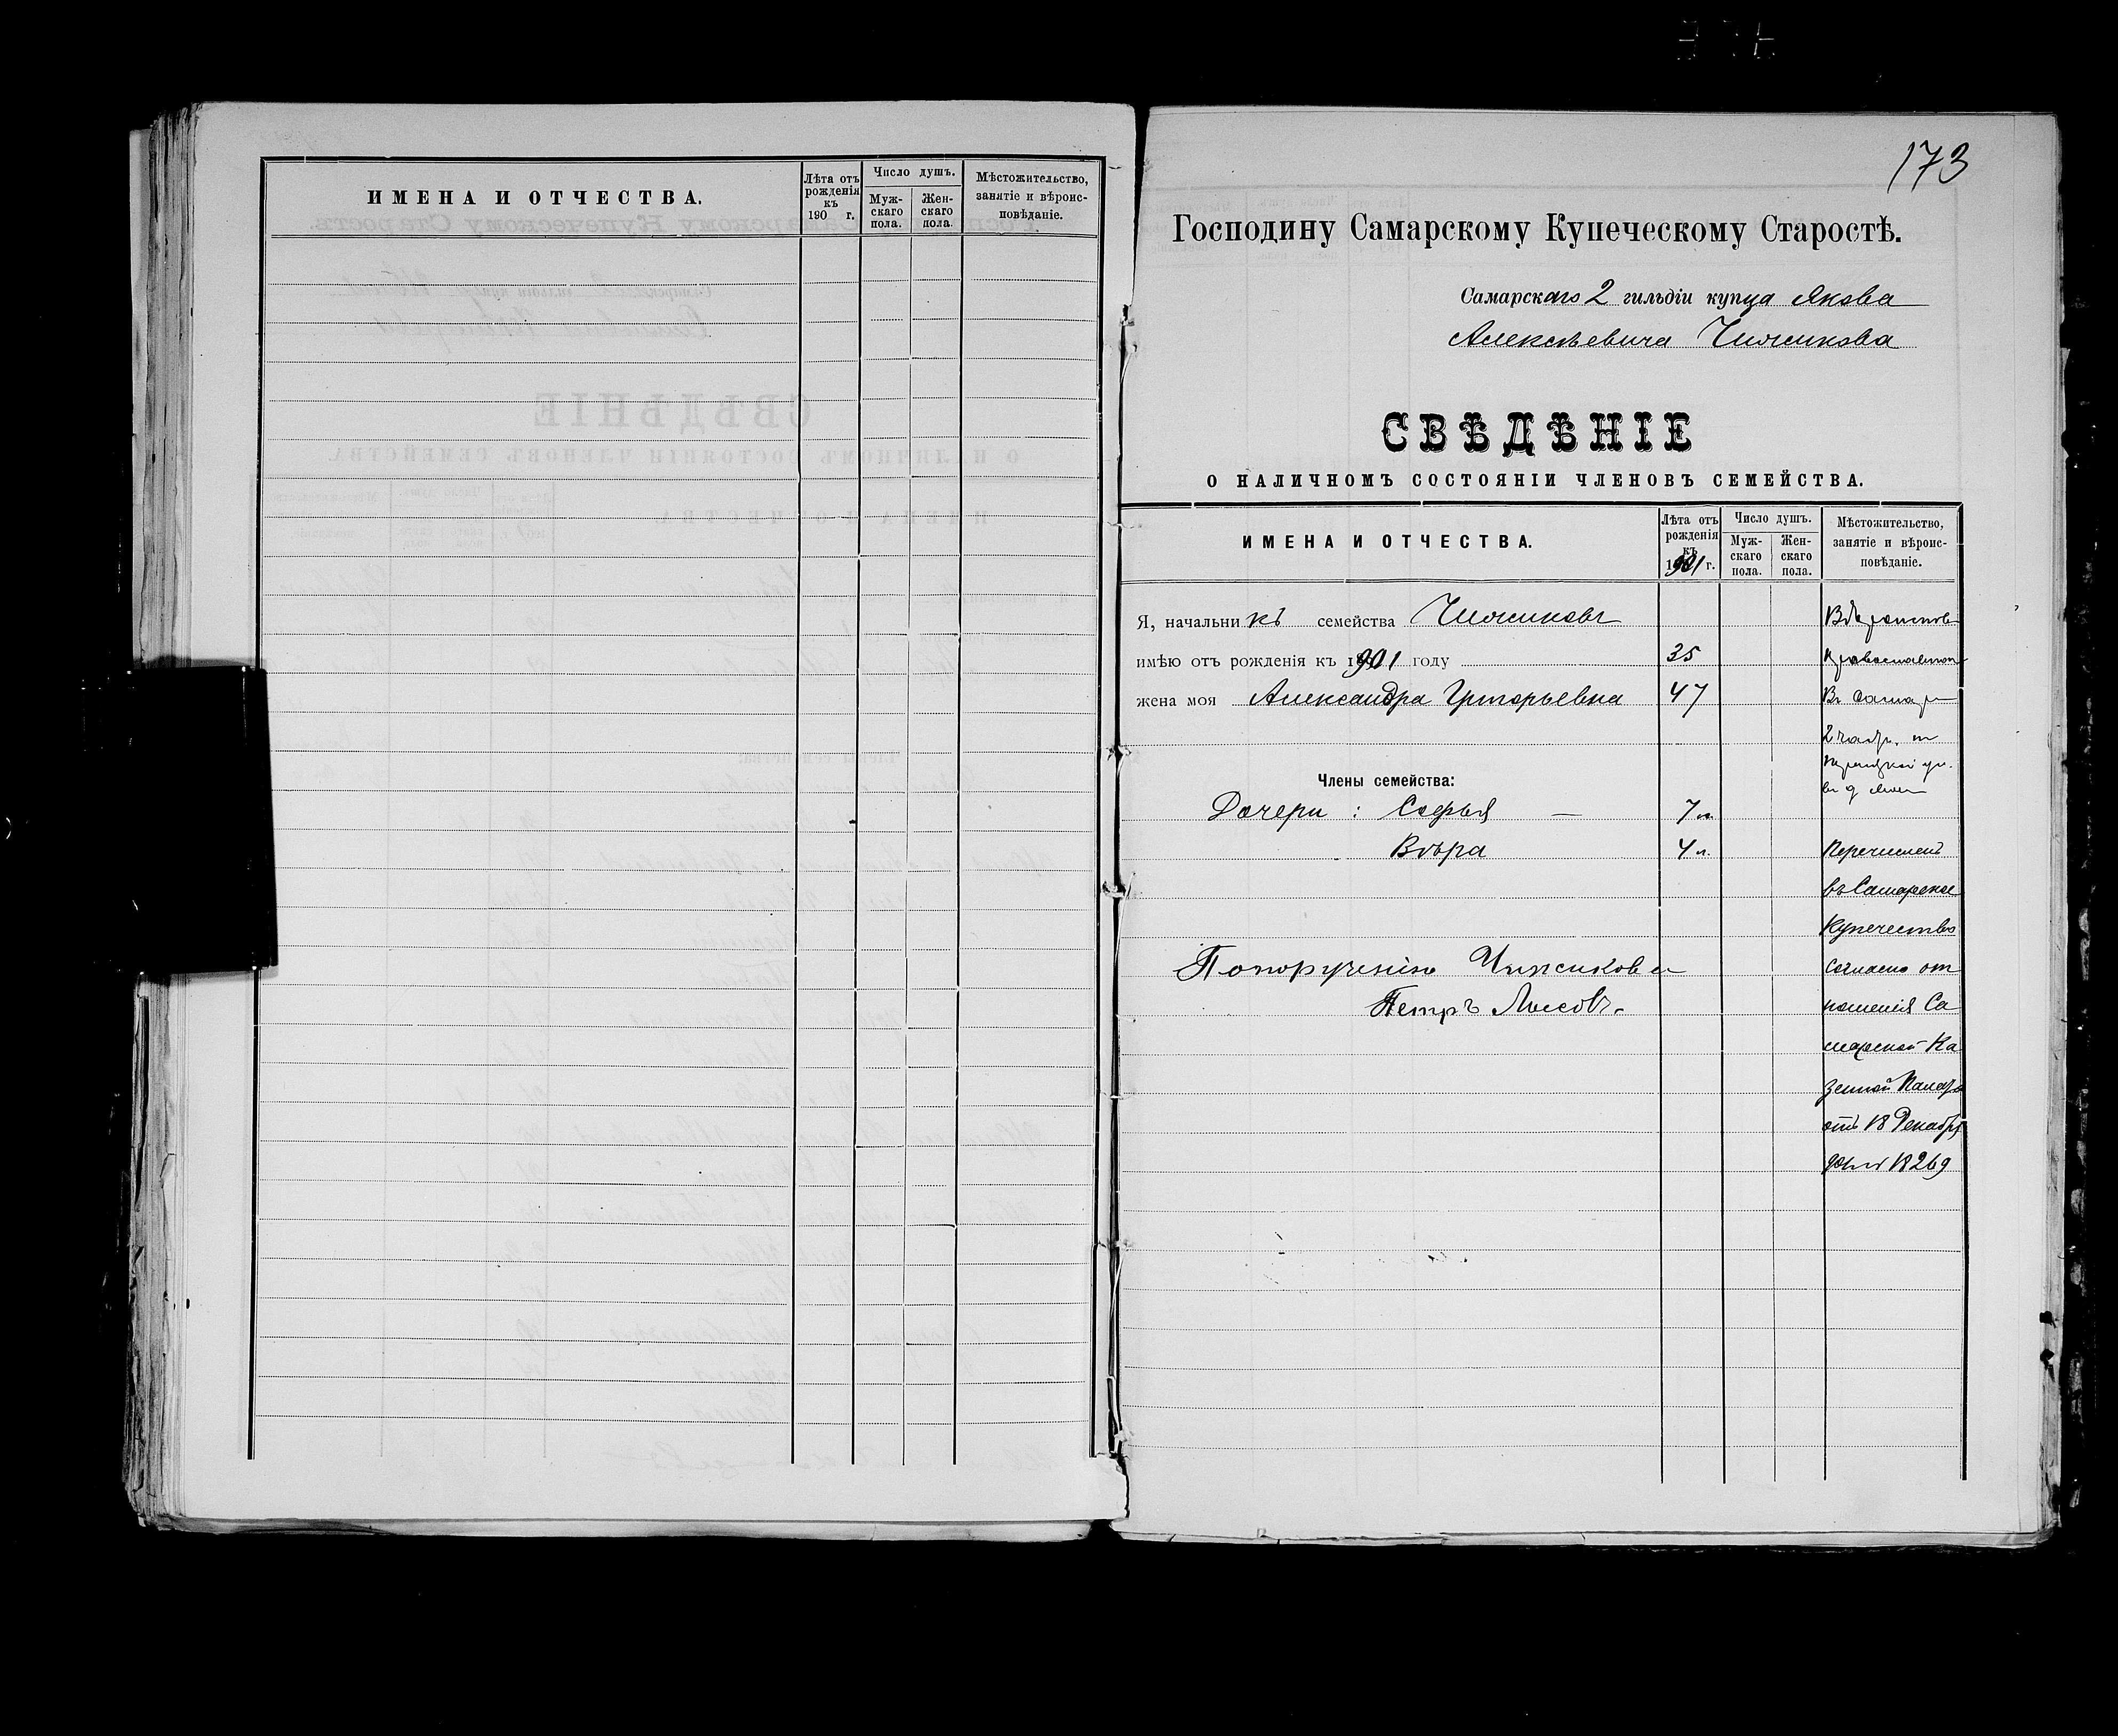 ИМЕНА И ОТЧЕСТВА.
Лѣта отъ рожденія къ 190 г.
Число душъ.
Мужскаго пола.
Женскаго пола.
Мѣстожительство, занятіе и вѣроисповѣданіе.
173
Господину Самарскому Купеческому Старостѣ.
Самарскаго 2 гильдіи купца Якова
Алексѣевича Чижикова
СВѢДѢНІЕ
О НАЛИЧНОМЪ СОСТОЯНІИ ЧЛЕНОВЪ СЕМЕЙСТВА.
ИМЕНА И ОТЧЕСТВА.
Лѣта отъ
рожденія
къ
1901 г.
Число душъ.
Муж-
скаго
пола.
Жен-
скаго
пола.
Мѣстожительство,
занятіе и вѣроис-
повѣданіе.
Я, начальникъ семейства Чижиковъ
имѣю отъ рожденія къ 1901 году 35
жена моя Александра Григорьевна 47 Въ
2
Члены семейства:
Дочери : Софья — 7 л.
Вѣра 4 л. Перечисленъ
въ Самарское
Купечество
По порученію Чижикова Согласно от
Петръ Лысовъ. ношенія Са
марской Ка
зенной
отъ 18 Декабря
18269